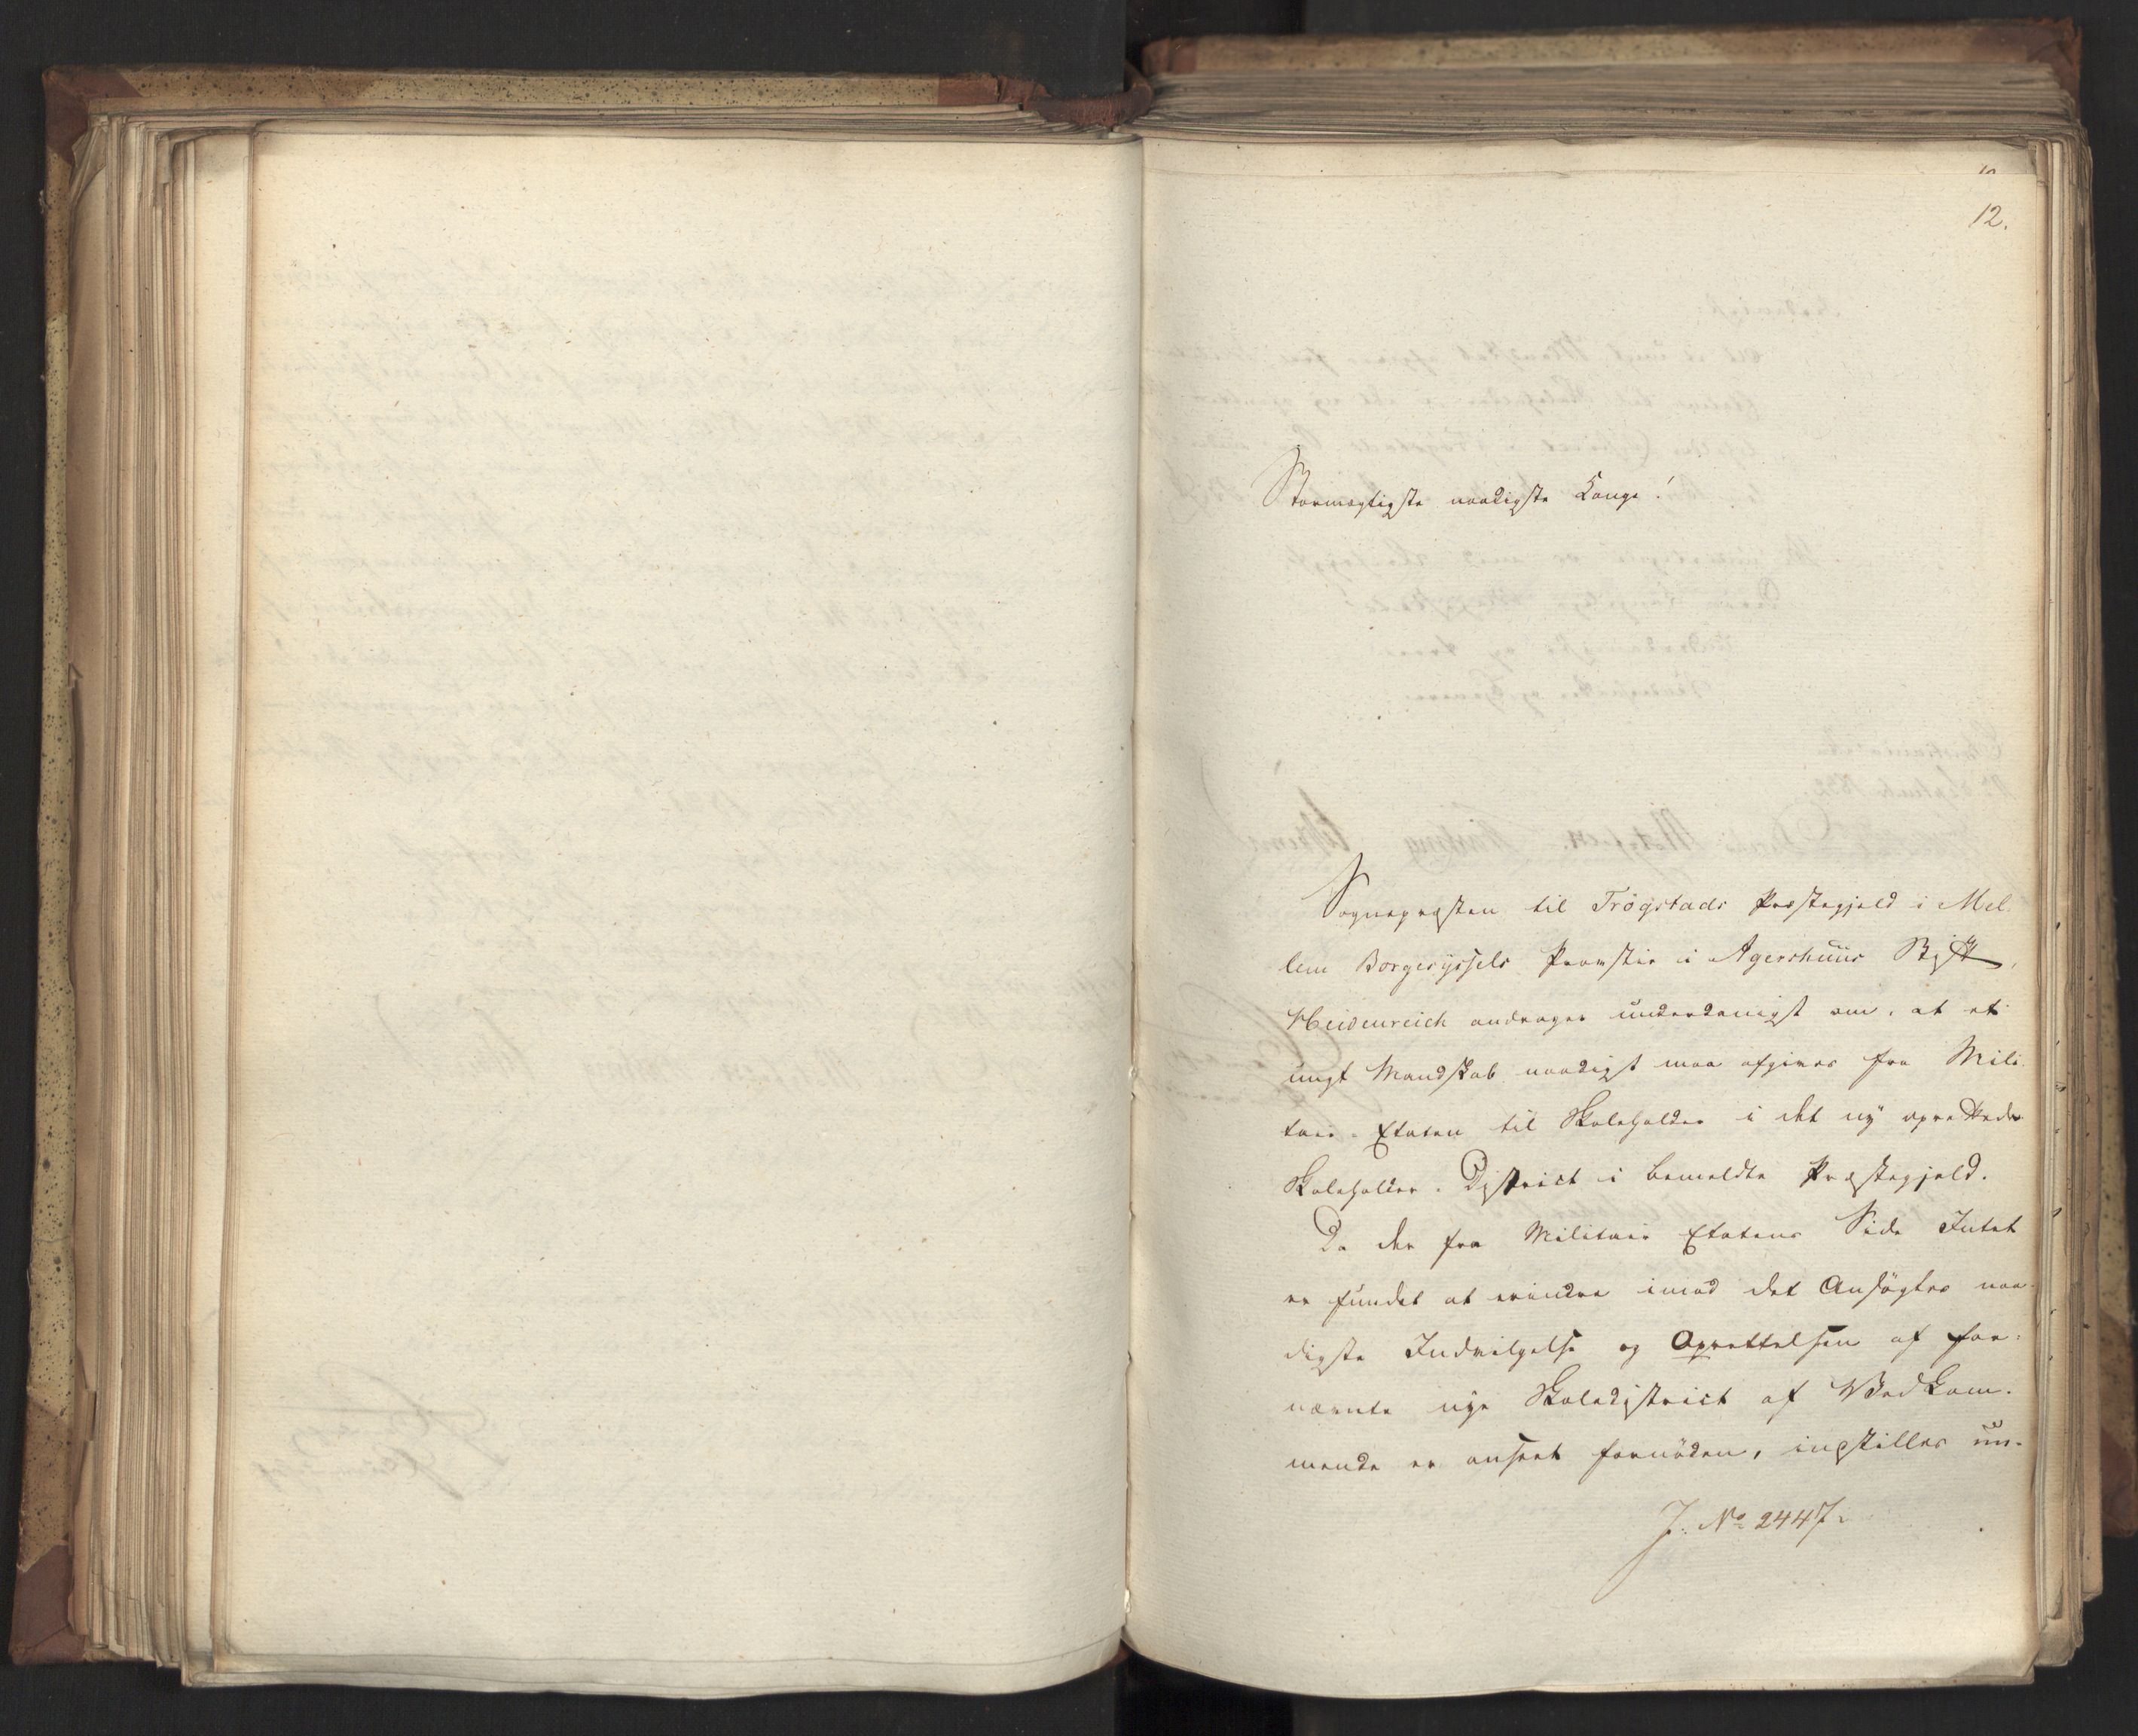 12.
Stormægtigste naadigste Konge!
Sognepræsten til Trögstads Præstegjeld i Mel-
lem Borgesyssels Provstie i Agershuus Stift,
Heidenreich andrager underdanigst om, at et
ungt Mandskab naadigst maa afgives fra Mili-
tair-Etaten til Skoleholder i det ny oprettede
Skoleholder-District i bemeldte Præstegjeld.
Da der fra Militair Etatens Side Intet
er fundet at erindre imod det Ansögtes naa-
digste Indvilgelse og Oprettelsen af for-
nævnte nye Skoledistrict af Vedkom-
mende er anseet fornöden, indstilles un-
J. No 2447.